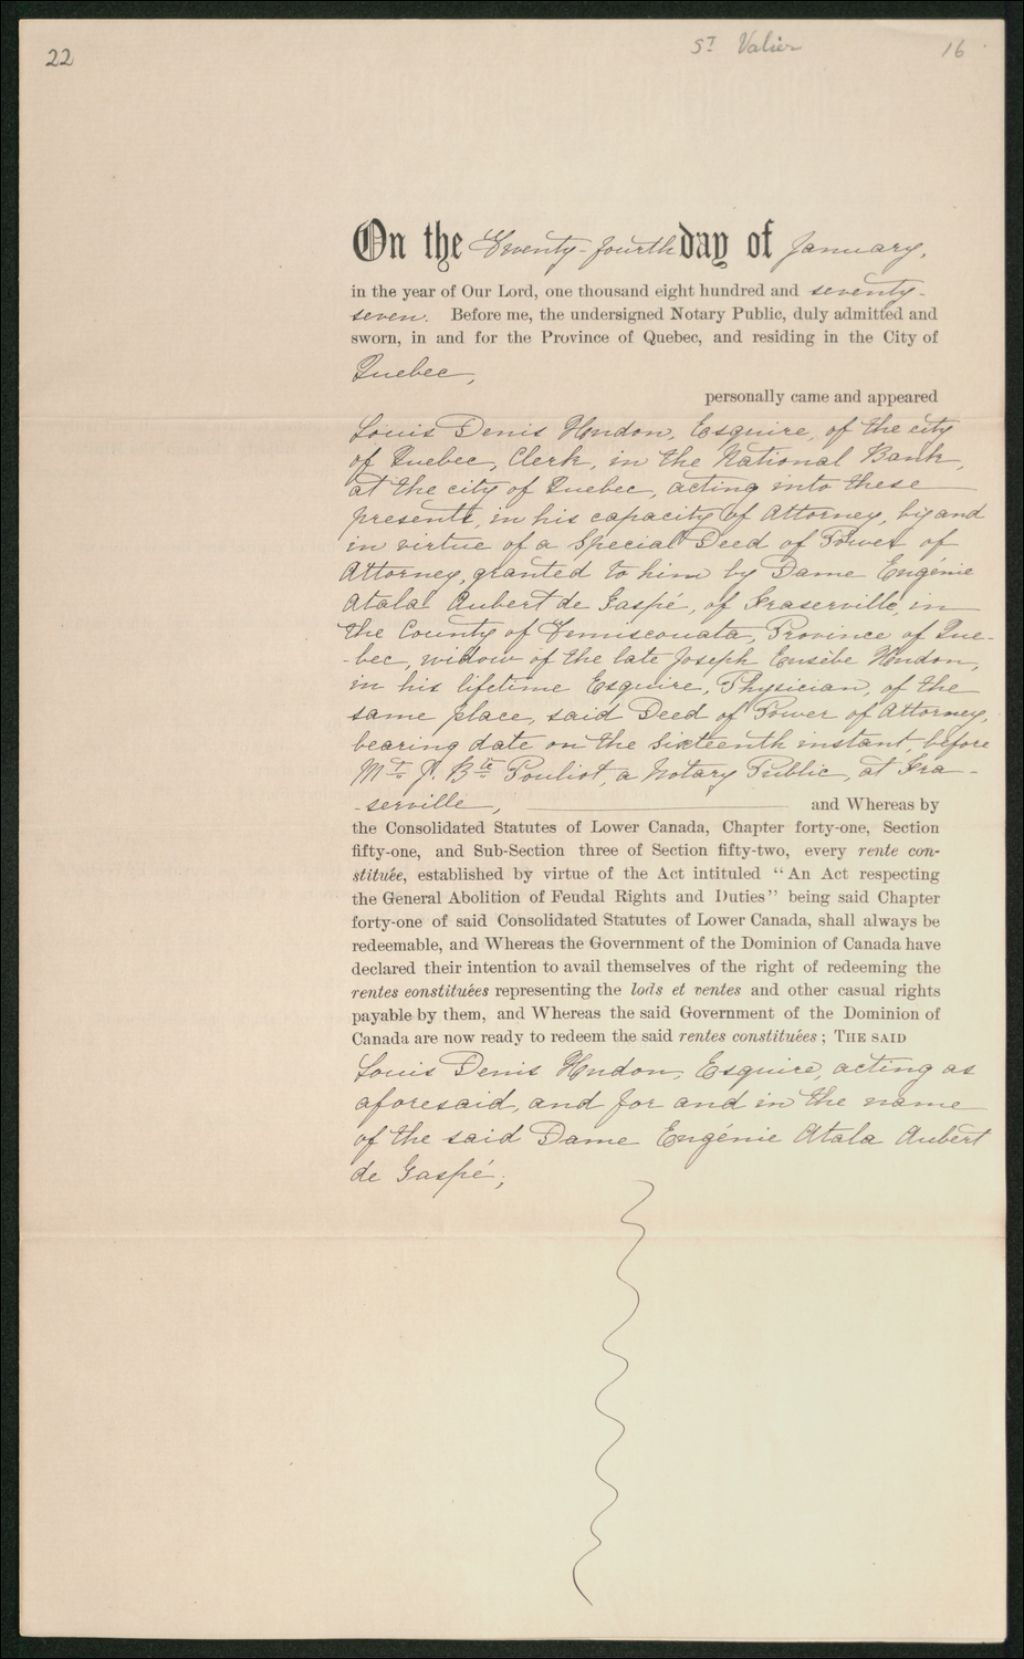 22
ST Valier
16
On the Twenty-fourth day of January,
in the year of Our Lord, one thousand eight hundred and seventy-
seven. Before me, the undersigned Notary Public, duly admitted and
sworn, in and for the Province of Quebec, and residing in the City of
Quebec,
personally came and appeared
Louis Denis Hudon, Esquire, of the city
of Quebec, Clerk, in the National Bank,
at the city of Quebec, acting into these
presents, in his capacity of Attorney, by and
in virtue of a Special Deed of Power of
Attorney, granted to him by Dame Eugénie
Atala Aubert de Gaspé, of Fraserville, in
the County of Temiscouata, Province of Que-
-bec, widow of the late Joseph Eusèbe Hudon,
in his lifetime Esquire, Physician, of the
same place, said Deed of Power of Attorney,
bearing date on the sixteenth instant, before
Mtr J. Bte Pouliot, a Notary Public, at Fra-
-serville, and Whereas by
the Consolidated Statutes of Lower Canada, Chapter forty-one, Section
fifty-one, and Sub-Section three of Section fifty-two, every rente con-
stituée, established by virtue of the Act intituled “An Act respecting
the General Abolition of Feudal Rights and Duties” being said Chapter
forty-one of said Consolidated Statutes of Lower Canada, shall always be
redeemable, and Whereas the Government of the Dominion of Canada have
declared their intention to avail themselves of the right of redeeming the
rentes constituées representing the lods et ventes and other casual rights
payable by them, and Whereas the said Government of the Dominion of
Canada are now ready to redeem the said rentes constituées; THE SAID
Louis Denis Hudon, Esquire, acting as
aforesaid, and for and in the name
of the said Dame Eugénie Atala Aubert
de Gaspé;